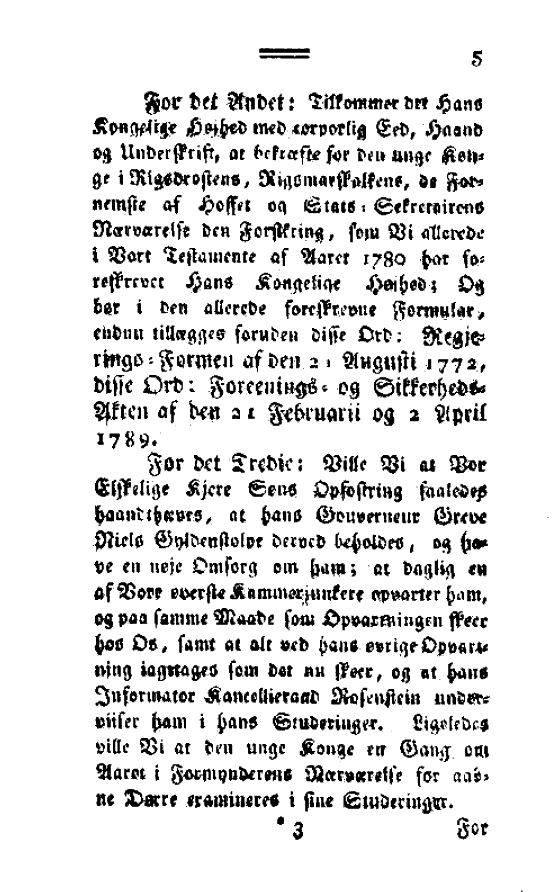 5
For det Andet: Tilkommer det Hans
Kongelige Højhed med corporlig Eed, Haand
og Underskrift, at bekræfte for den unge Kon-
ge i Rigsdrostens, Rigsmarskalkens, de For-
nemste af Hoffet og Stats-Sekretairens
Nærværelse den Forsikring, som Vi allerede
i Vort Testamente af Aaret 1780 har fo-
reskrevet Hans Kongelige Højhed; Og
bør i den allerede foreskrevne Formular,
endnu tillægges foruden disse Ord: Regje-
rings-Formen af den 21 Augusti 1772,
disse Ord: Foreenings- og Sikkerheds-
Akten af den 21 Februarii og 2 April
1789.
For det Tredie: Ville Vi at Vor
Elskelige Kjere Søns Opfostring saaledes
haandthæves, at hans Gouverneur Greve
Niels Gyldenstolpe derved beholdes, og ha-
ve en nøje Omsorg om ham; at daglig en
af Vore øverste Kammerjunkere opvarter ham,
og paa samme Maade som Opvartningen skeer
hos Os, samt at alt ved hans øvrige Opvart-
ning iagttages som det nu skeer, og at hans
Informator Kancellieraad Rosenstein under-
viiser ham i hans Studeringer. Ligeledes
ville Vi at den unge Konge en Gang om
Aaret i Formynderens Nærværelse for aab-
ne Dørre examineres i sine Studeringer.
* 3 For